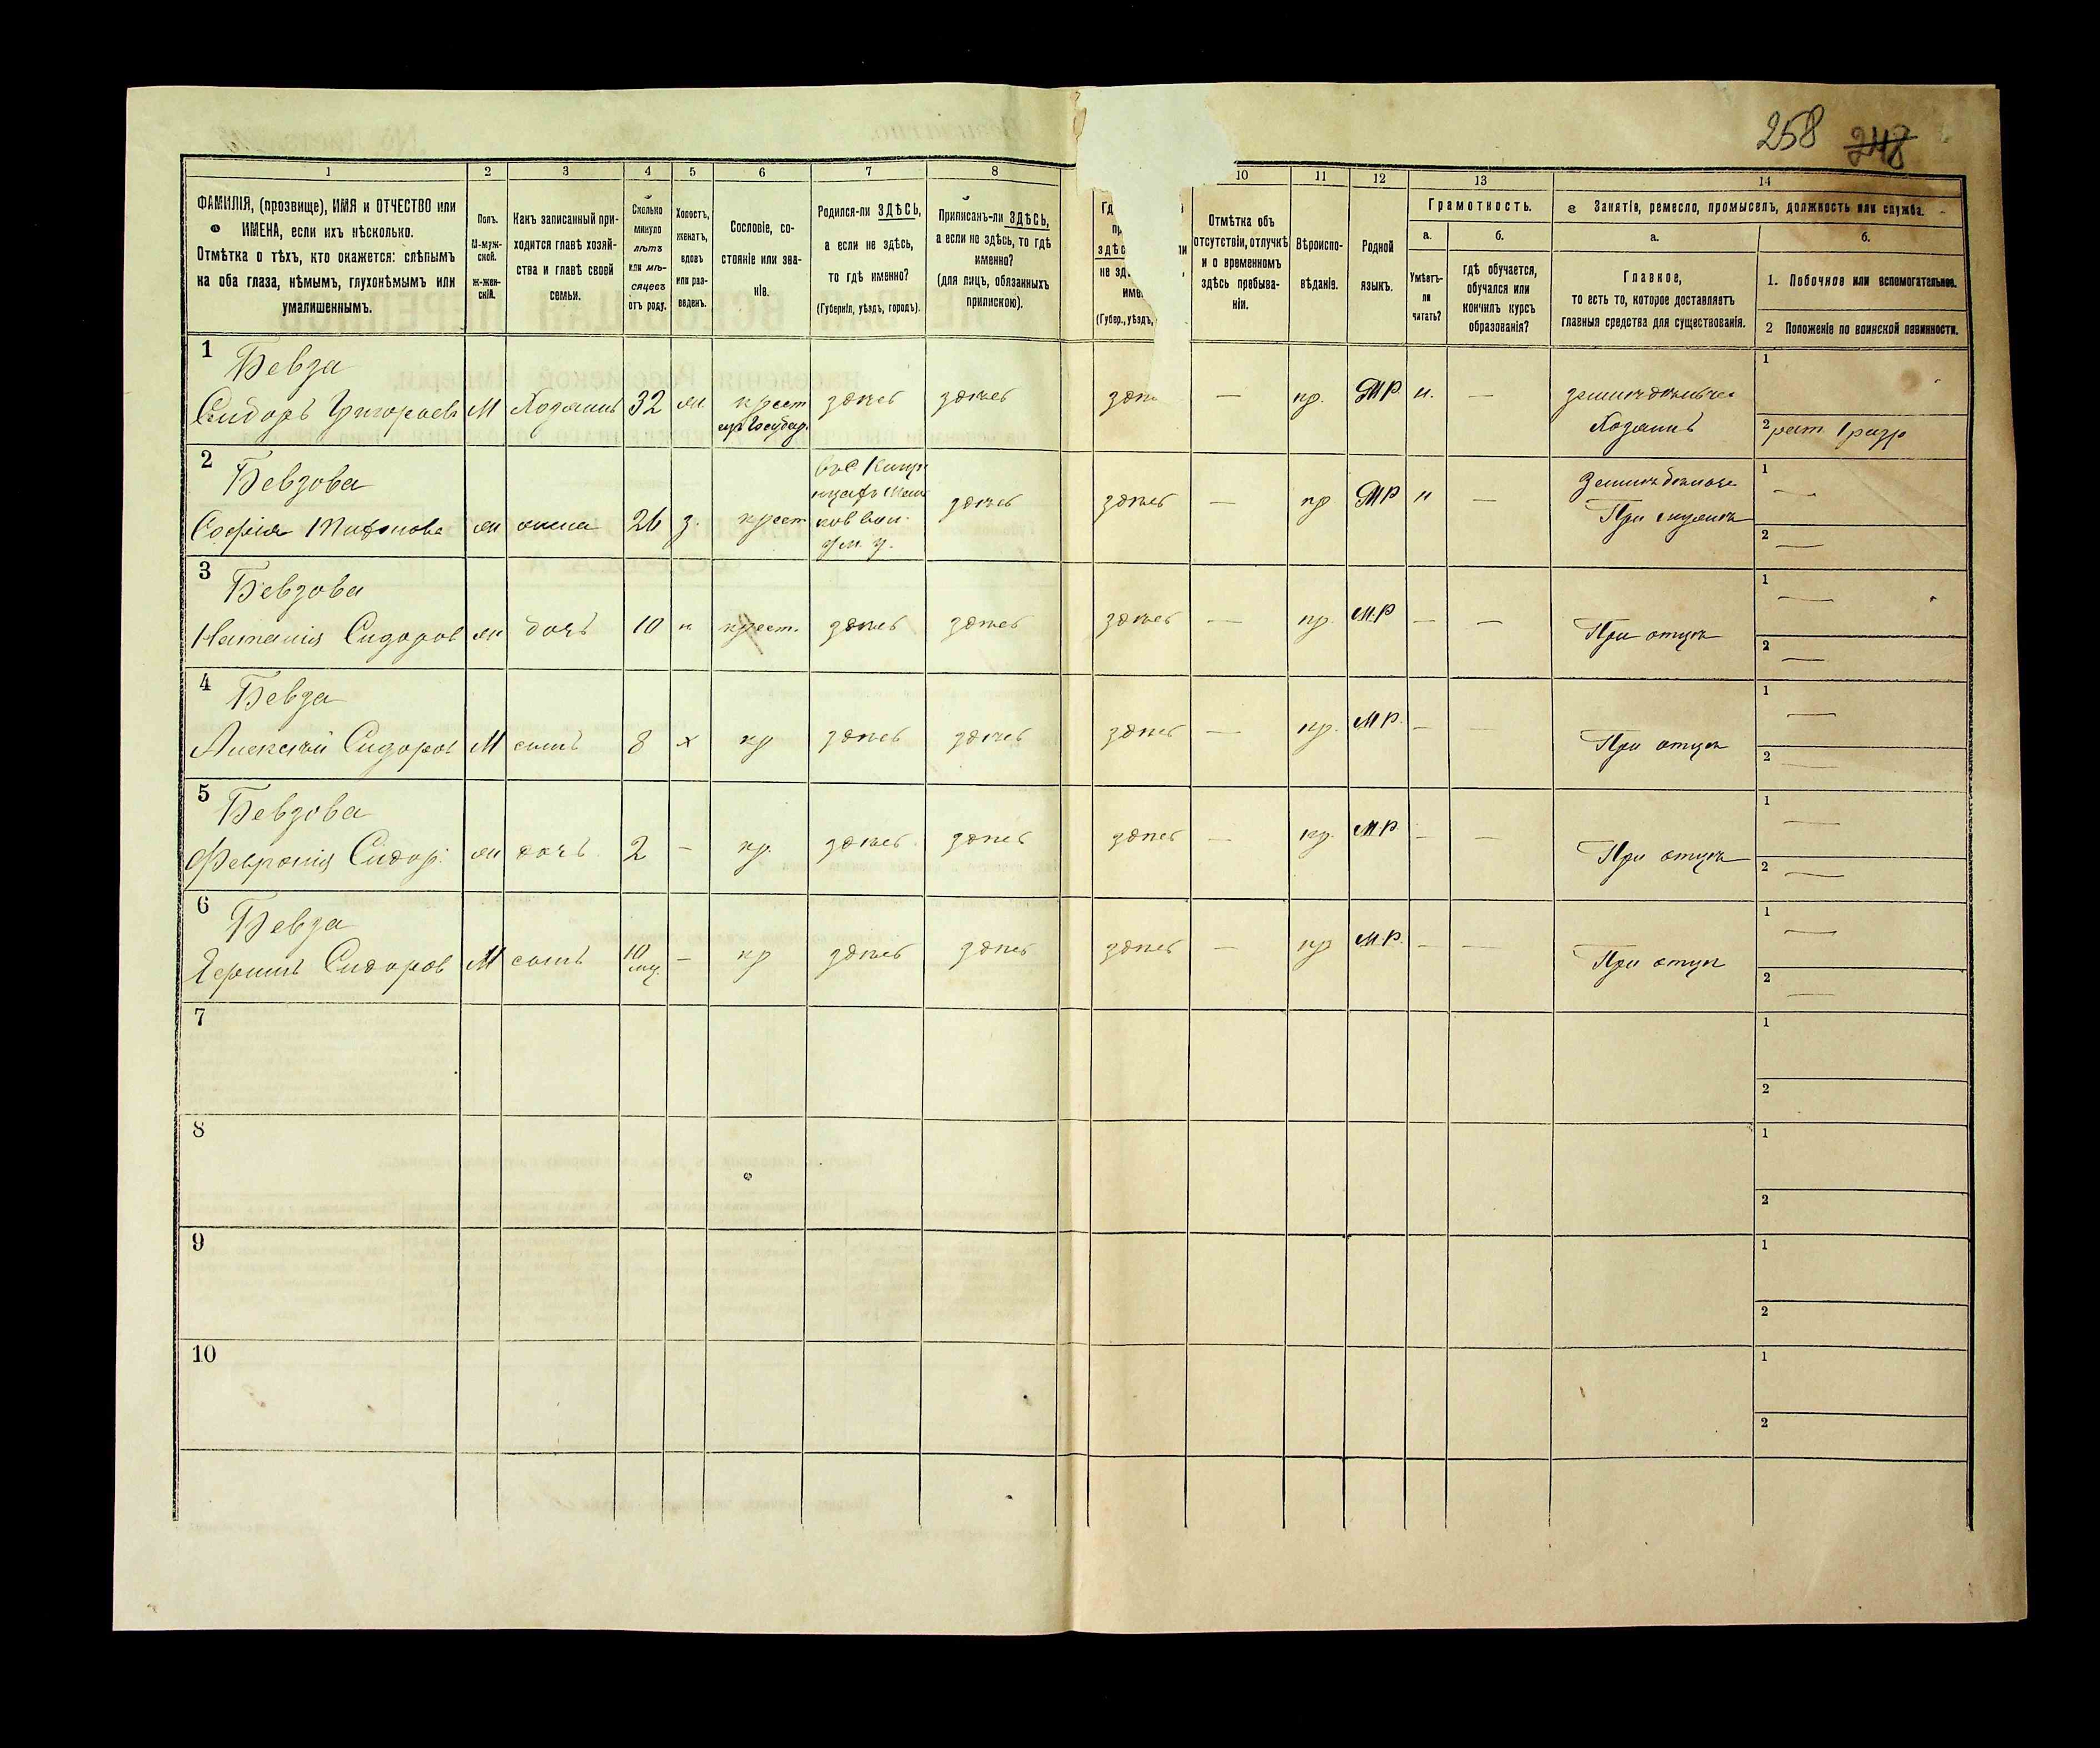 258 248
1 2 3 4 5 6 7 8 10 11 12 13 14
ФАМИЛІЯ, (прозвище), ИМЯ и ОТЧЕСТВО или
ИМЕНА, если ихъ нѣсколько.
Отмѣтка о тѣхъ, кто окажется: слѣпымъ
на оба глаза, нѣмымъ, глухонѣмымъ или
умалишеннымъ.
Полъ.
М-муж-
ской.
ж-жен-
скій.
Какъ записанный при-
ходится главѣ хозяй-
ства и главѣ своей
семьи.
Сколько
минуло
лѣтъ
или мѣ-
сяцевъ
отъ роду.
Холостъ,
женатъ,
вдовъ
или раз-
веденъ.
Сословіе, со-
стояніе или зва-
ніе.
Родился-ли ЗДѢСЬ,
а если не здѣсь,
то гдѣ именно?
(Губернія, уѣздъ, городъ).
Приписанъ-ли ЗДѢСЬ,
а если не здѣсь, то гдѣ
именно?
(для лицъ, обязанныхъ
припискою).
(Губер., уѣздъ,
Отмѣтка объ
отсутствіи, отлучкѣ
и о временномъ
здѣсь пребыва-
ніи.
Вѣроиспо-
вѣданіе.
Родной
языкъ.
Грамотность.
а. б.
Умѣетъ-
ли
читать?
гдѣ обучается,
обучался или
кончилъ курсъ
образованія?
Занятіе, ремесло, промыселъ, должность или служба.
а. б.
Главное,
то есть то, которое доставляетъ
главныя средства для существованія.
1. Побочное или вспомогательное.
2 Положеніе по воинской повинности.
1 Бевза 1
Сидоръ Григорьевъ М Хозяинъ 32 ж. крест здѣсь здѣсь — пр. МР. н. —
изъ Государ. Хозяинъ 2 рат. 1 разр
2 Бевзова 1 —
София жн жена 26 з. крест здѣсь здѣсь — пр МР н —
2 —
3 Бевзова 1 —
Наталия Сидоров жн дочь 10 крест. здѣсь здѣсь здѣсь — пр. М.Р — — При отцѣ
2 —
4 Бевза 1 —
Алексѣй Сидоров М сынъ 8 х кр здѣсь здѣсь здѣсь — пр. М.Р. — — При отцѣ
2 —
5 Бевзова 1 —
Феврония Сидор. жн дочь 2 — кр. здѣсь здѣсь здѣсь — пр. М.Р. — — При отцѣ
2 —
6 Бевза 1 —
Сидоров М сынъ 10 — кр здѣсь здѣсь здѣсь — пр М.Р. — — При отцѣ
2 —
7 1
2
8 1
2
9 1
2
10 1
2